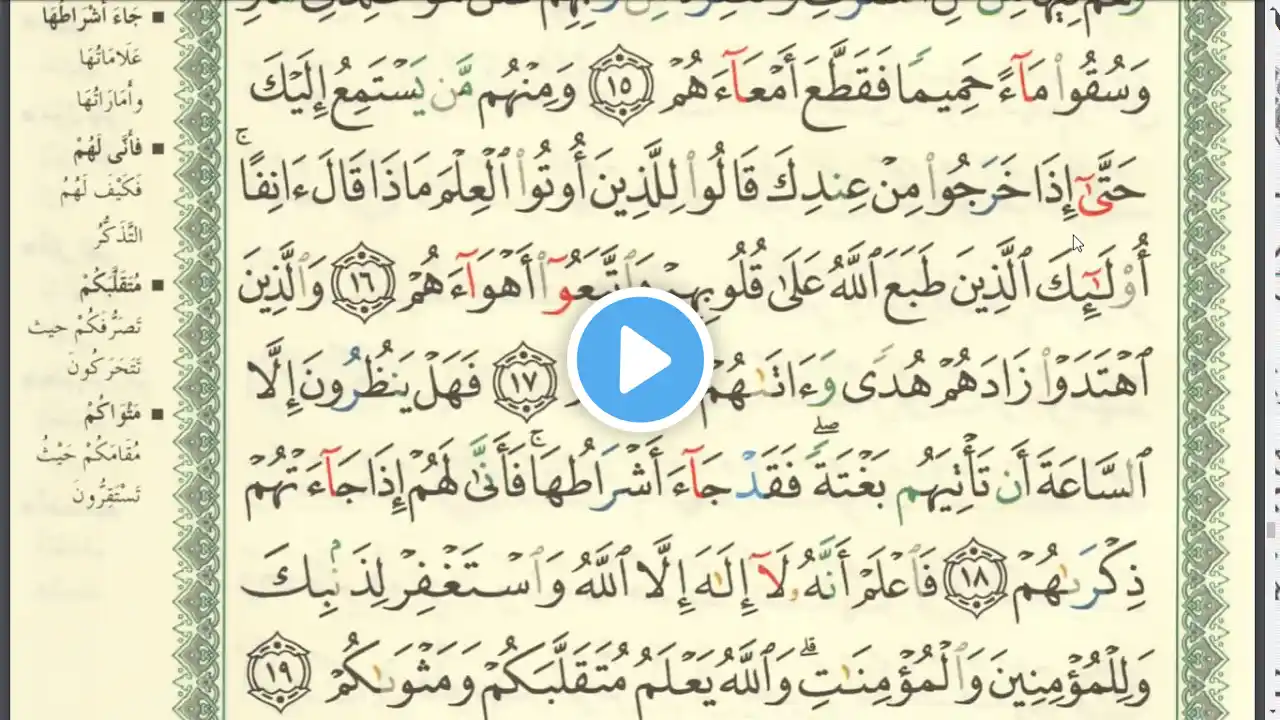 وَسُقُوا۟ مَآءً حَمِيمًا فَقَطَّعَ أَمْعَآءَهُمْ ١٥ وَمِنْهُم مَّن يَسْتَمِعُ إِلَيْكَ
حَتَّىٰٓ إِذَا خَرَجُوا۟ مِنْ عِندِكَ قَالُوا۟ لِلَّذِينَ أُوتُوا۟ ٱلْعِلْمَ مَاذَا قَالَ ءَانِفًا ۚ
أُو۟لَـٰٓئِكَ ٱلَّذِينَ طَبَعَ ٱللَّهُ عَلَىٰ قُلُوبِهِمْ وَٱتَّبَعُوٓا۟ أَهْوَآءَهُمْ ١٦ وَٱلَّذِينَ
ٱهْتَدَوْا۟ زَادَهُمْ هُدًى وَءَاتَىٰهُمْ ١٧ فَهَلْ يَنظُرُونَ إِلَّا
ٱلسَّاعَةَ أَن تَأْتِيَهُم بَغْتَةً ۖ فَقَدْ جَآءَ أَشْرَاطُهَا ۚ فَأَنَّىٰ لَهُمْ إِذَا جَآءَتْهُمْ
ذِكْرَىٰهُمْ ١٨ فَٱعْلَمْ أَنَّهُۥ لَآ إِلَـٰهَ إِلَّا ٱللَّهُ وَٱسْتَغْفِرْ لِذَنۢبِكَ
وَلِلْمُؤْمِنِينَ وَٱلْمُؤْمِنَـٰتِ ۗ وَٱللَّهُ يَعْلَمُ مُتَقَلَّبَكُمْ وَمَثْوَىٰكُمْ ١٩
جَاءَ أَشْرَاطُهَا
عَلَامَاتُهَا
وأَمَارَاتُهَا
فَأَنَّى لَهُمْ
فَكَيْفَ لَهُمُ
التَّذَكُّرُ
مُتَقَلَّبَكُمْ
تَصَرُّفَكُمْ حيث
تَتَحَرَكُونَ
مَثْوَاكُمْ
مُقَامَكُمْ حَيْثُ
تَسْتَقِرُّونَ